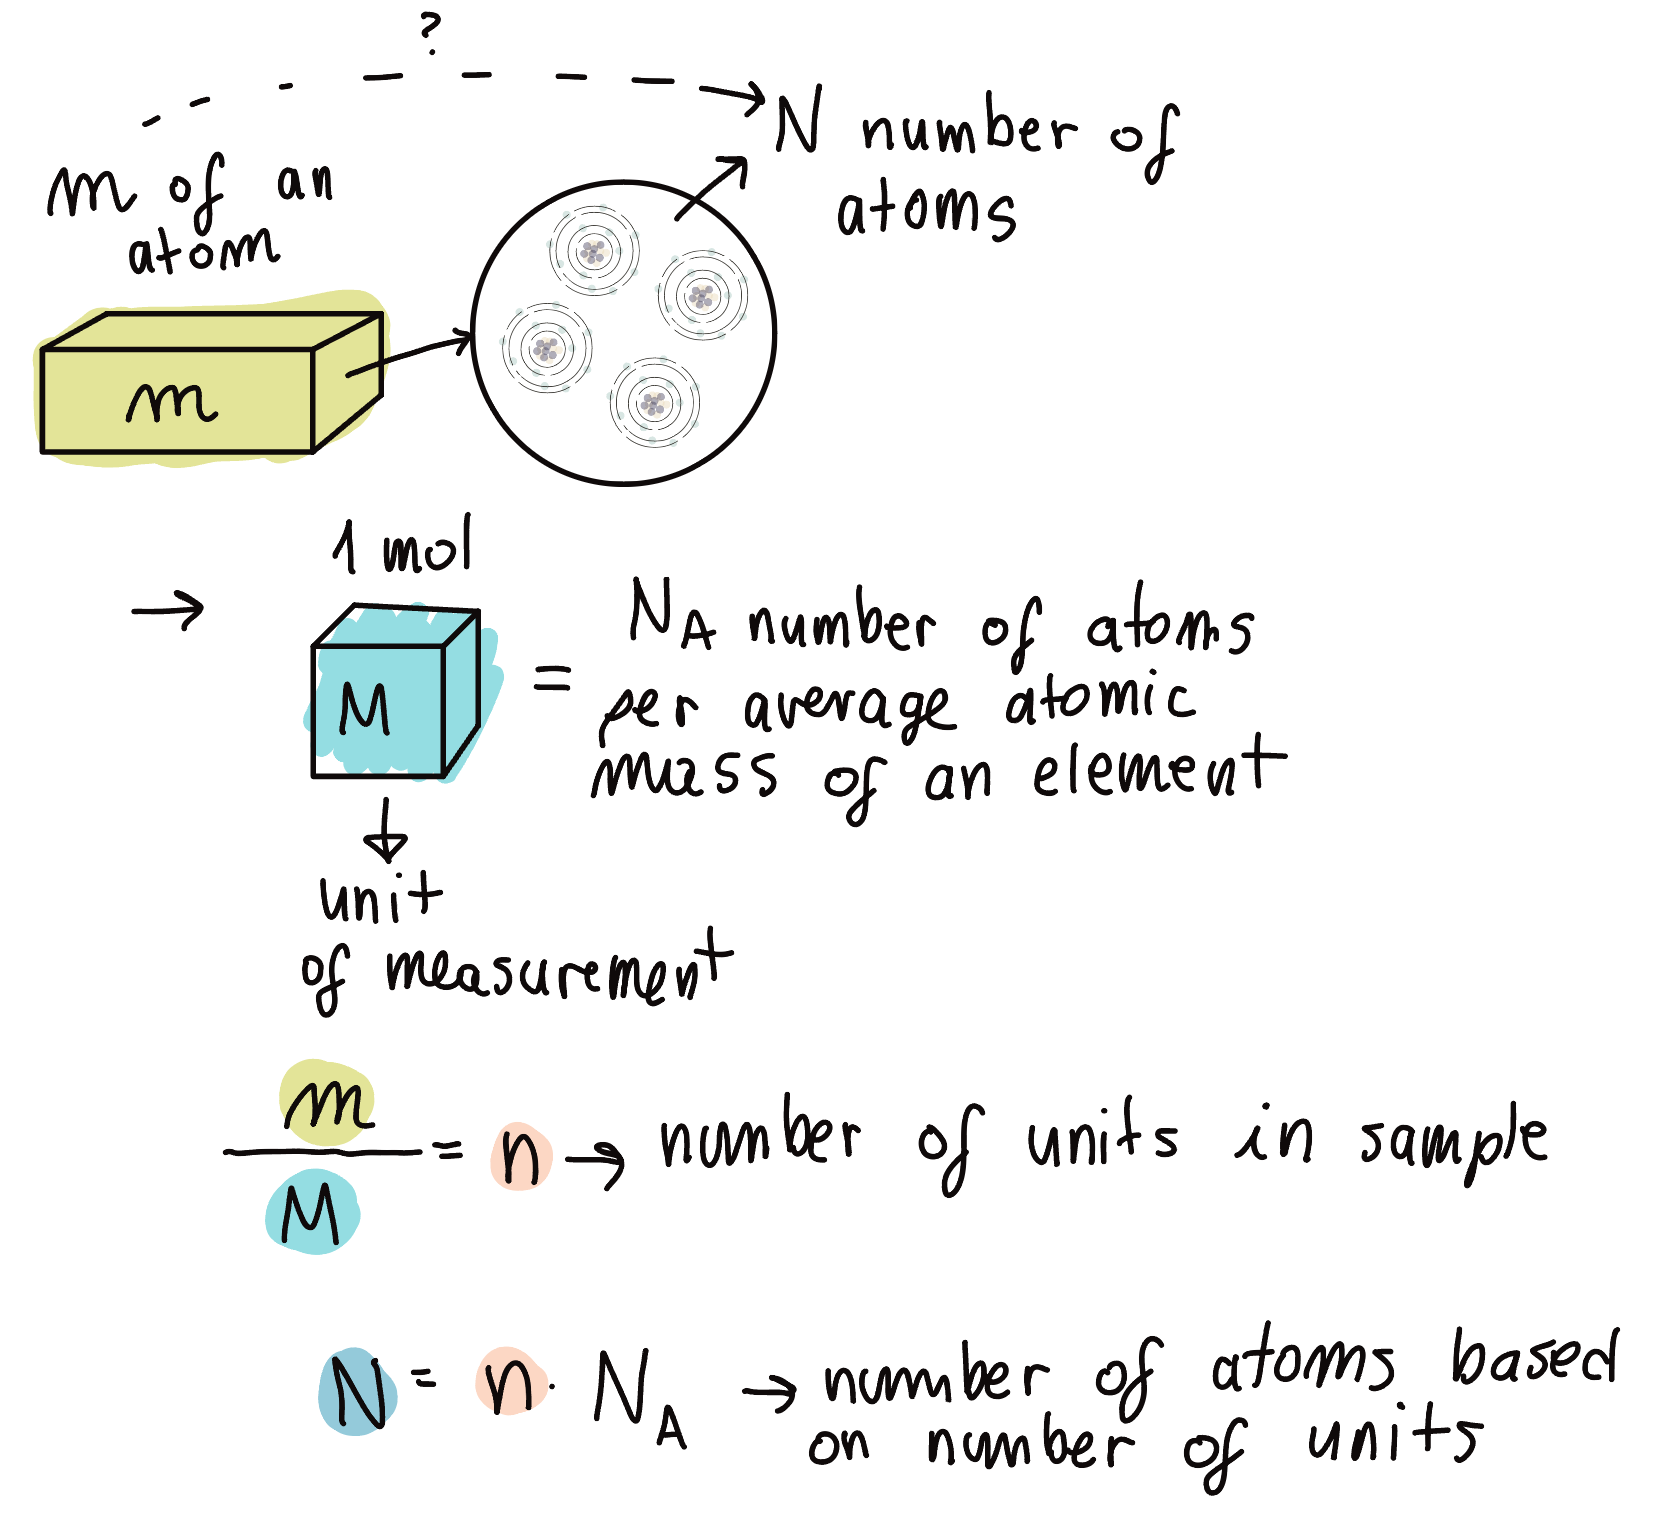 ?
m of an
atom
N number of
atoms
m
1 mol
→
M
=
N_A number of atoms
per average atomic
mass of an element
unit
of measurement
m
— = n → number of units in sample
M
N = n · N_A → number of atoms based
on number of units